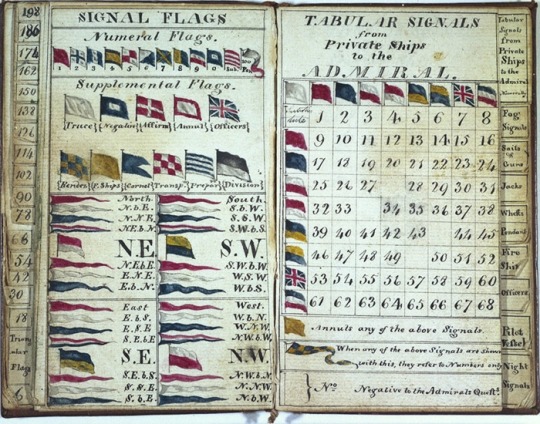 198
186
174
162
150
138
126
114
102
90
78
66
54
42
30
18
6
SIGNAL FLAGS
Numeral Flags.
1 2 3 4 5 6 7 8 9 0
Supplemental Flags.
Truce Negative Affirm Annul Officers
Rendez F. Ships Cornet Transp. Prepar Division
North. South.
N.b.E. S.b.W.
N.N.E. S.S.W.
NE.b.N. S.W.b.S.
N.E. S.W.
N.E.b.E. S.W.b.W.
E.N.E. W.S.W.
E.b.N. W.b.S.
East West.
E.b.S. W.b.N.
E.S.E W.N.W.
S.E.b.E N.W.b.W.
S.E. N.W.
S.E.b.S. N.W.b.N.
S.S.E. N.N.W.
S.b.E. N.b.W.
TABULAR SIGNALS
from
Private Ships
to the
ADMIRAL.
1 2 3 4 5 6 7 8
9 10 11 12 13 14 15 16
17 18 19 20 21 22 23 24
25 26 27 28 29 30 31
32 33 34 35 36 37 38
39 40 41 42 43 44 45
46 47 48 49 50 51 52
53 54 55 56 57 58 59 60
61 62 63 64 65 66 67 68
Annuls any of the above Signals.
When any of the above Signals are shown
with this, they refer to Numbers only
No Negative to the Admirals Quest.
Tabular
Signals
from
Private
Ships
to the
Admiral
Fog
Signals
Sails
Guns
Jacks
Whefts
Pendant
Fire
Ship
Officers
Pilot
Vessel
Night
Signals